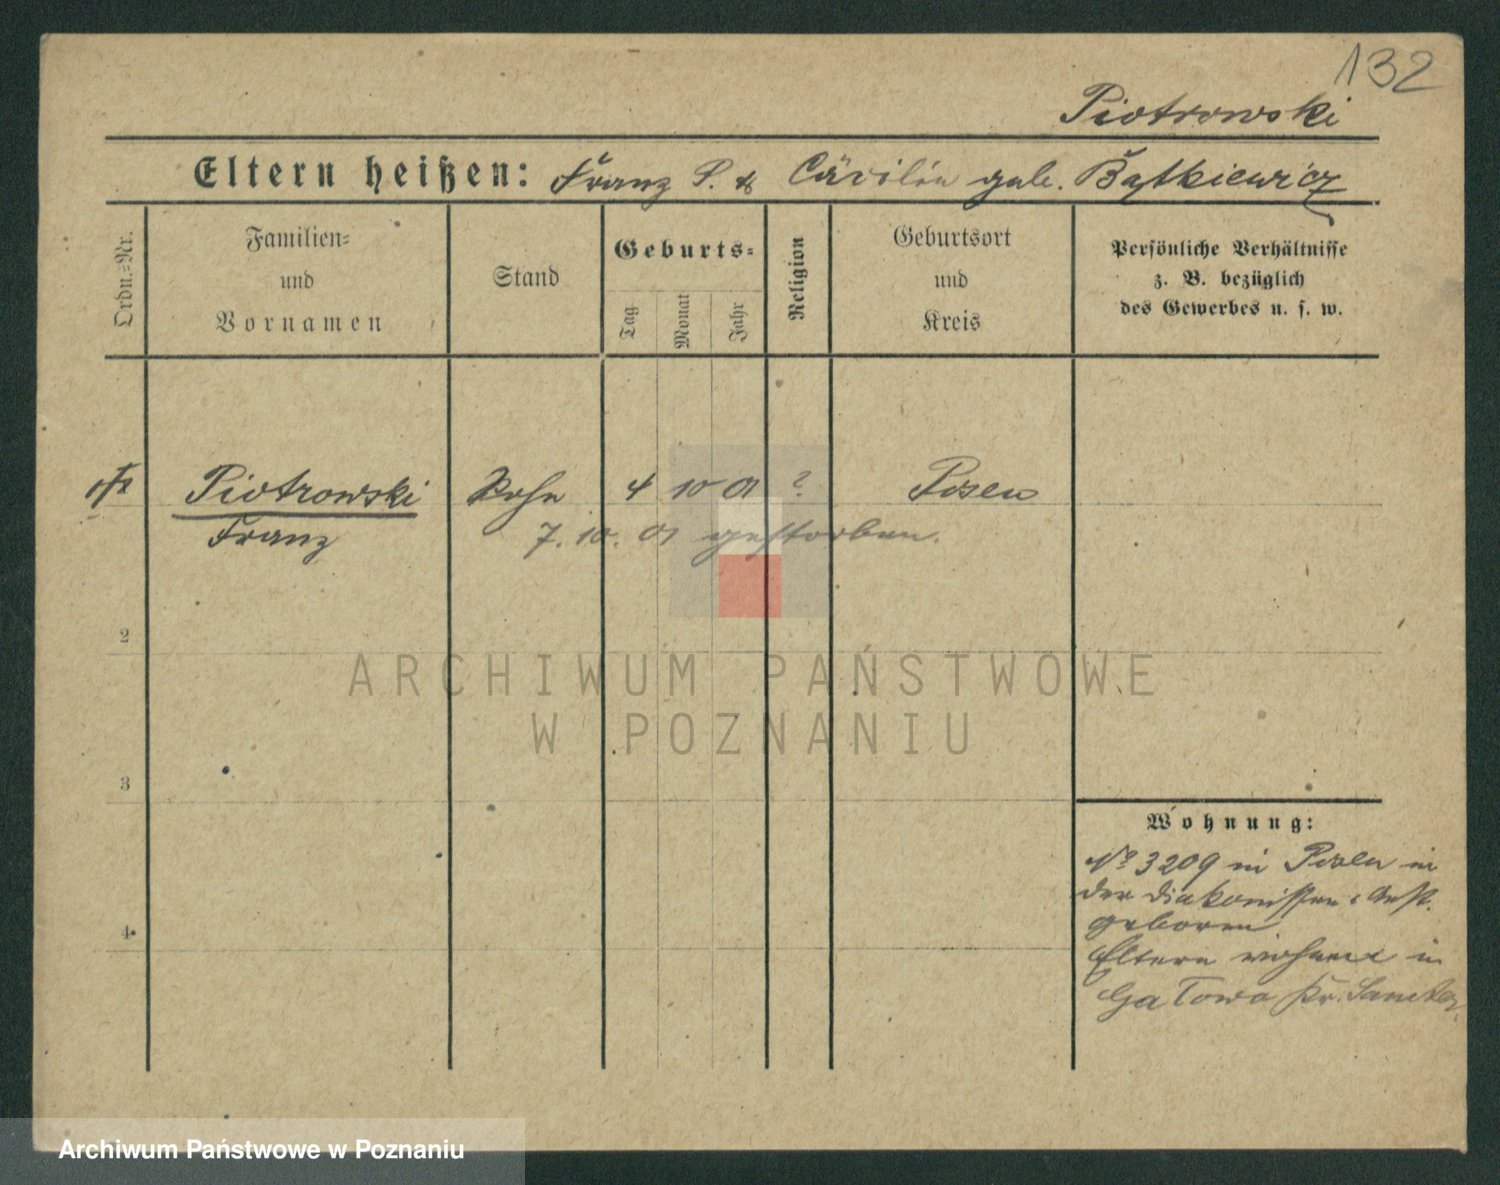 132
Piotrowski
Eltern heißen: Franz P. & Cäcilia geb. Bątkiewicz
Ordn.=Nr.
Familien=
und
Vornamen
Stand
Geburts=
Tag
Monat
Jahr
Religion
Geburtsort
und
Kreis
Persönliche Verhältnisse
z. B. bezüglich
des Gewerbes u. s. w.
Piotrowski Sohn 4 10 01 ? Posen
Franz 7. 10. 01 gestorben.
2
3
4
Wohnung:
No 3209 in Posen in
der Diakonissen= Anst.
geboren
Eltern wohnen in
Kr. Samter
ARCHIWUM PAŃSTWOWE
W POZNANIU
Archiwum Państwowe w Poznaniu